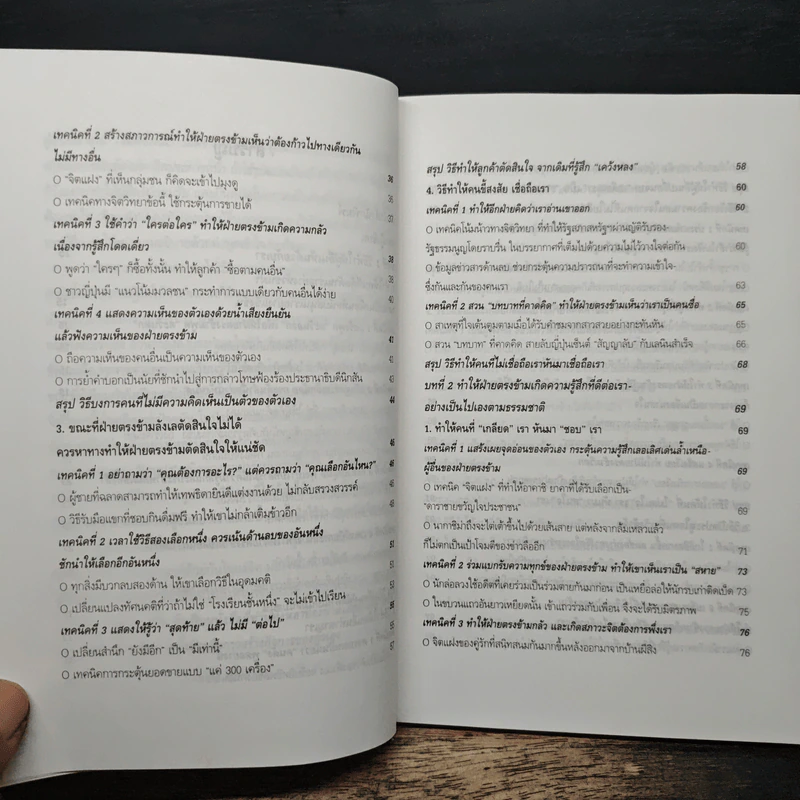 เทคนิคที่ 2 สร้างสภาวการณ์ทำให้ฝ่ายตรงข้ามเห็นว่าต้องก้าวไปทางเดียวกัน
ไม่มีทางอื่น 36
O "จิตแฝง" ที่เห็นกลุ่มชน ก็คิดจะเข้าไปมุงดู 36
O เทคนิคทางจิตวิทยาข้อนี้ ใช้กระตุ้นการขายได้ 37
เทคนิคที่ 3 ใช้คำว่า "ใครต่อใคร" ทำให้ฝ่ายตรงข้ามเกิดความกลัว
เนื่องจากรู้สึกโดดเดี่ยว 38
O พูดว่า "ใครๆ" ก็ซื้อทั้งนั้น ทำให้ลูกค้า "ซื้อตามคนอื่น" 38
O ชาวญี่ปุ่นมี "แนวโน้มมวลชน" กระทำการแบบเดียวกับคนอื่นได้ง่าย 40
เทคนิคที่ 4 แสดงความเห็นของตัวเองด้วยน้ำเสียงยืนยัน
แล้วฟังความเห็นของฝ่ายตรงข้าม 41
O ถือความเห็นของคนอื่นเป็นความเห็นของตัวเอง 41
O การย้ำคำบอกเป็นนัยที่ชักนำไปสู่การกล่าวโทษฟ้องร้องประธานาธิบดีนิกสัน 43
สรุป วิธีบงการคนที่ไม่มีความคิดเห็นเป็นตัวของตัวเอง 44
3. ขณะที่ฝ่ายตรงข้ามลังเลตัดสินใจไม่ได้
ควรหาทางทำให้ฝ่ายตรงข้ามตัดสินใจให้แน่ชัด 46
เทคนิคที่ 1 อย่าถามว่า "คุณต้องการอะไร?" แต่ควรถามว่า "คุณเลือกอันไหน?" 46
O ผู้ชายที่ฉลาดสามารถทำให้เทพธิดายินดีแต่งงานด้วย ไม่กลับสรวงสวรรค์
O วิธีรับมือแขกที่ชอบกินดื่มฟรี ทำให้เขาไม่กล้าเดิมข้าวอีก
เทคนิคที่ 2 เวลาใช้วิธีสองเลือกหนึ่ง ควรเน้นด้านลบของอันหนึ่ง
ชักนำให้เลือกอีกอันหนึ่ง
O ทุกสิ่งมีบวกลบสองด้าน ให้เขาเลือกวิธีในอุดมคติ
O เปลี่ยนแปลงทัศนคติที่ว่าถ้าไม่ใช่ "โรงเรียนชั้นหนึ่ง" จะไม่เข้าไปเรียน
เทคนิคที่ 3 แสดงให้รู้ว่า "สุดท้าย" แล้ว ไม่มี "ต่อไป"
O เปลี่ยนสำนึก "ยังมีอีก" เป็น "มีเท่านี้"
O เทคนิคการกระตุ้นยอดขายแบบ "แค่ 300 เครื่อง" 57
สรุป วิธีทำให้ลูกค้าตัดสินใจ จากเดิมที่รู้สึก "เคว้งหลง" 58
4. วิธีทำให้คนขี้สงสัย เชื่อถือเรา 60
เทคนิคที่ 1 ทำให้อีกฝ่ายคิดว่าเราอ่านเขาออก 60
O เทคนิคโน้มน้าวทางจิตวิทยา ที่ทำให้รัฐสภาสหรัฐฯผ่านญัติรับรอง-
รัฐธรรมนูญโดยราบรื่น ในบรรยากาศที่เต็มไปด้วยความไม่ไว้วางใจต่อกัน 60
O ข้อมูลข่าวสารด้านลบ ช่วยกระตุ้นความปรารถนาที่จะทำความเข้าใจ-
ซึ่งกันและกันของคนเรา 63
เทคนิคที่ 2 สวน "บทบาทที่คาดคิด" ทำให้ฝ่ายตรงข้ามเห็นว่าเราเป็นคนซื่อ 65
O สาเหตุที่ใจเต้นตูมตามเมื่อได้รับคำชมจากสาวสวยอย่างกะทันหัน 65
O สวน "บทบาท" ที่คาดคิด สายลับญี่ปุ่นเซ็นต์ "สัญญาลับ" กับเลนินสำเร็จ 66
สรุป วิธีทำให้คนที่ไม่เชื่อถือเราหันมาเชื่อถือเรา 68
บทที่ 2 ทำให้ฝ่ายตรงข้ามเกิดความรู้สึกที่ดีต่อเรา-
อย่างเป็นไปเองตามธรรมชาติ 69
1. ทำให้คนที่ "เกลียด" เรา หันมา "ชอบ" เรา 69
เทคนิคที่ 1 แสร้งเผยจุดอ่อนของตัวเอง กระตุ้นความรู้สึกเลอเลิศเด่นล้ำเหนือ-
ผู้อื่นของฝ่ายตรงข้าม 69
O เทคนิค "จิตแฝง" ที่ทำให้อาคาชิ ยาคาที่ได้รับเลือกเป็น-
"ดาราชายขวัญใจประชาชน" 69
O นากาชิม่าถึงจะไต่เต้าขึ้นไปด้วยเส้นสาย แต่หลังจากล้มเหลวแล้ว
ก็ไม่ตกเป็นเป้าโจมตีของข่าวลืออีก 71
เทคนิคที่ 2 ร่วมแบกรับความทุกข์ของฝ่ายตรงข้าม ทำให้เขาเห็นเราเป็น "สหาย" 73
O นักล่อลวงใช้อดีตที่เคยร่วมเป็นร่วมตายกันมาก่อน เป็นเหยื่อล่อให้นักรบเก่าติดเบ็ด 73
O ในขบวนแถวอันยาวเหยียดนั้น เข้าแถวร่วมกับเพื่อน จึงจะได้รับมิตรภาพ 75
เทคนิคที่ 3 ทำให้ฝ่ายตรงข้ามกลัว และเกิดสภาวะจิตต้องการพึ่งเรา 76
O จิตแฝงของคู่รักที่สนิทสนมกันมากขึ้นหลังออกมาจากบ้านผีสิง 76